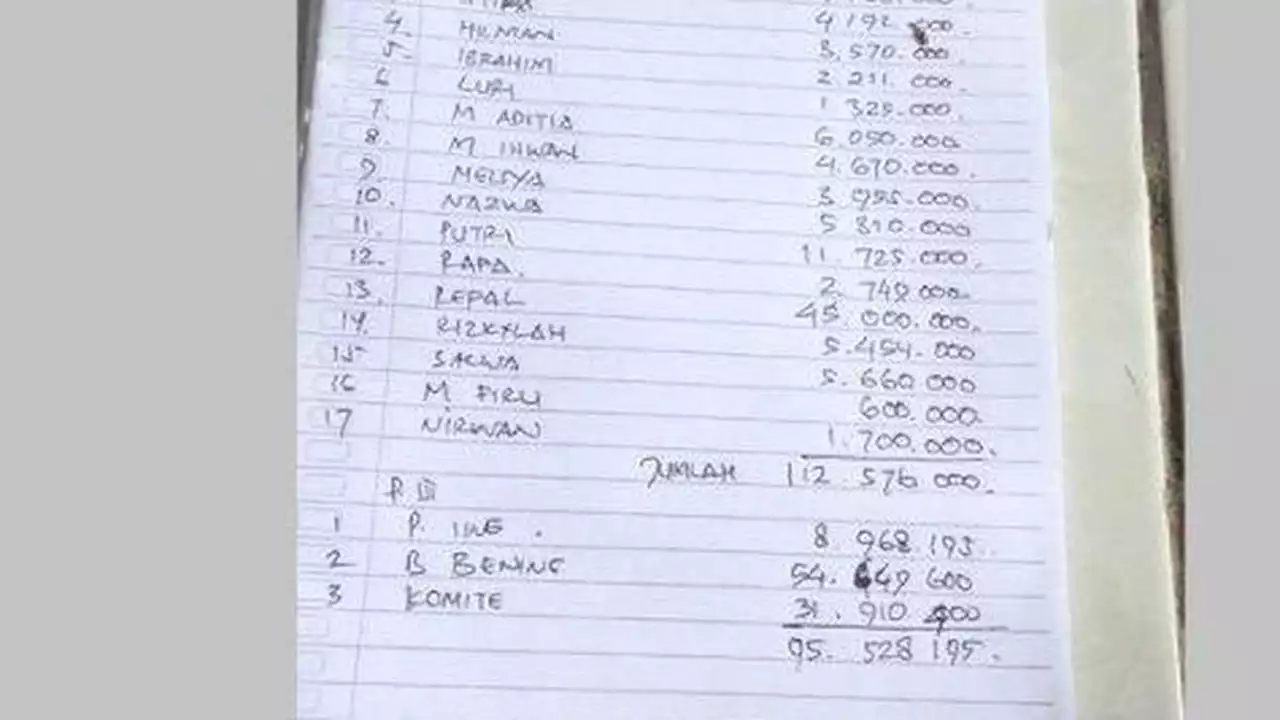 4. HILMAN 4 192 000.
5. IBRAHIM 3.570.000
6 LUPI 2 211 000.
7. M ADITIA 1 325.000.
8. M IHWAN 6 050.000
9. MELSYA 4.670.000.
10. NAZWA 3 955.000.
11. PUTRI 5 310.000
12. RAPA. 11. 725.000.
13. REPAL 2. 749 000.
14. RIZKYLAH 45. 000.000.
15 SALWA 5.454.000
16 M FIRLI 5.660 000
17 NIRWAN 600.000.
1.700.000.
JUMLAH 112. 576 000.
P. III
1 P. 8 968.193
2 B BENING 54. 649 600
3 KOMITE 31. 910 400
95. 528 195.